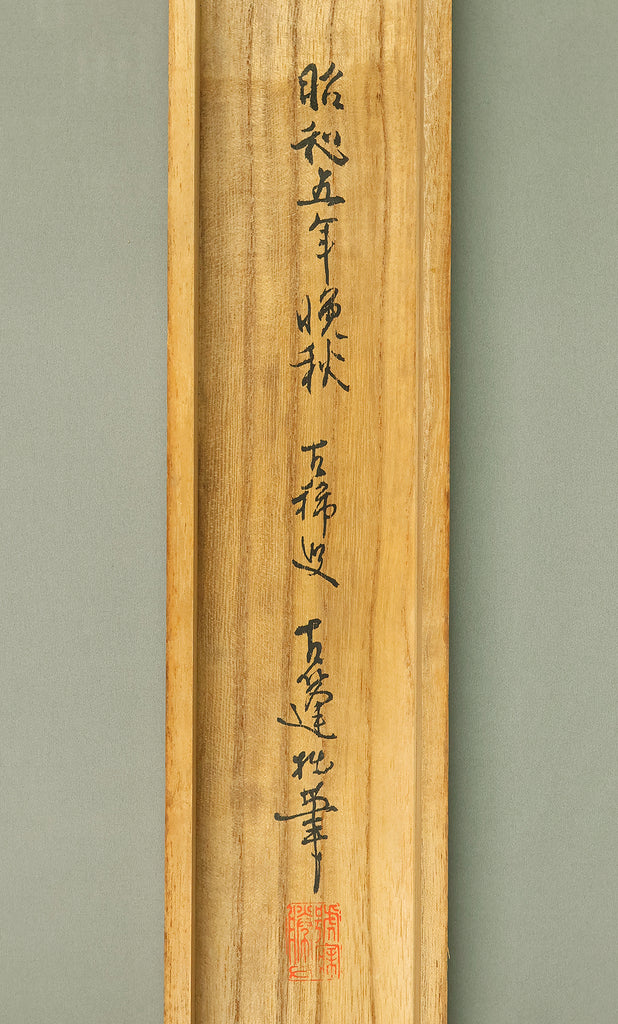 昭和五年晩秋 古稀叟 古篷拙筆